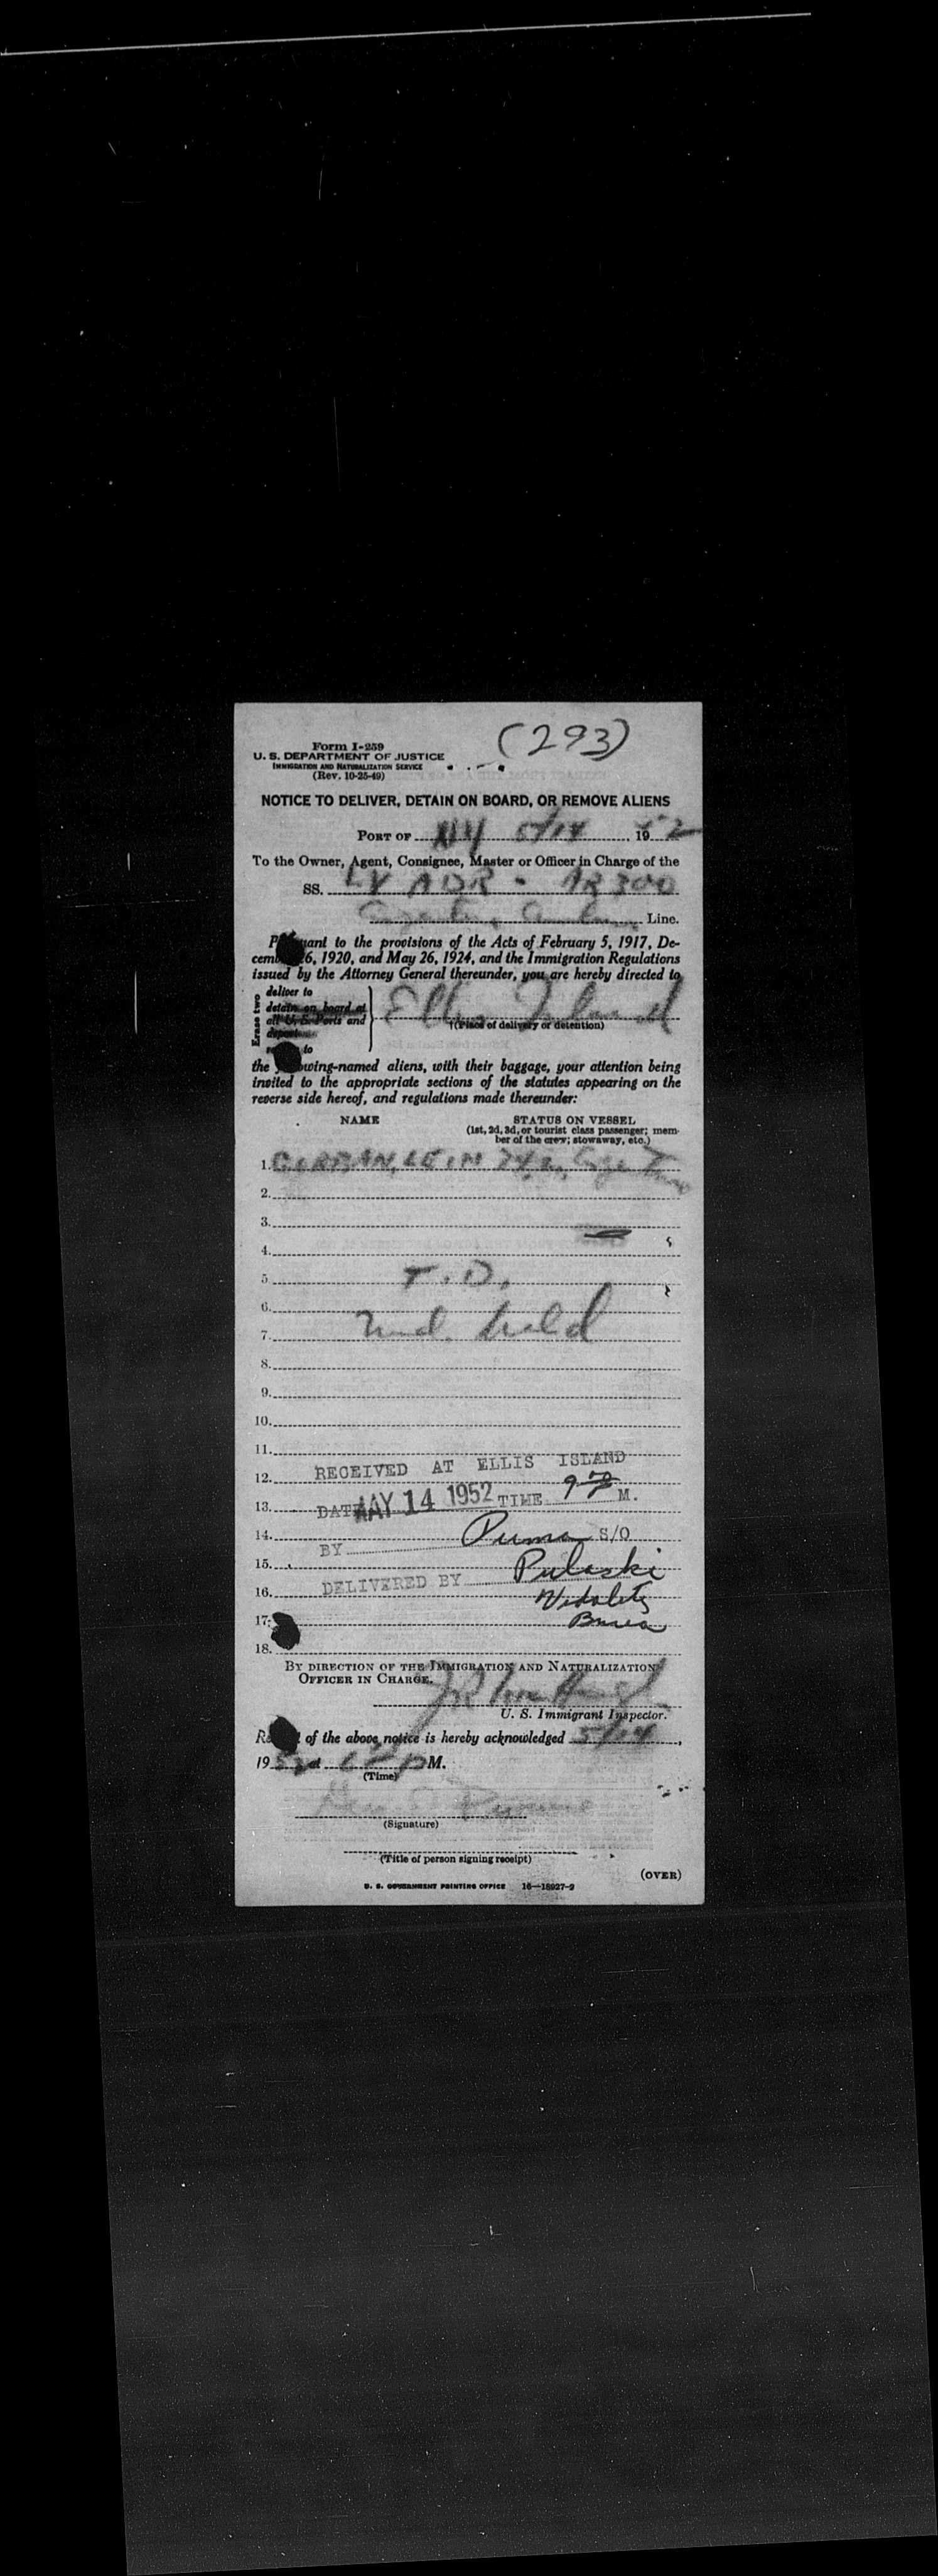 (293)
Form I-259
U. S. DEPARTMENT OF JUSTICE
IMMIGRATION AND NATURALIZATION SERVICE
(Rev. 10-25-49)
NOTICE TO DELIVER, DETAIN ON BOARD, OR REMOVE ALIENS
PORT OF NY 5/14, 1952
To the Owner, Agent, Consignee, Master or Officer in Charge of the
SS. LV ADR - AR 300
Line.
Pursuant to the provisions of the Acts of February 5, 1917, De-
cember 26, 1920, and May 26, 1924, and the Immigration Regulations
issued by the Attorney General thereunder, you are hereby directed to
Erase two
deliver to
detain on board at
all U. S. Ports and
deport
to
Ellis Island
†(Place of delivery or detention)
the following-named aliens, with their baggage, your attention being
invited to the appropriate sections of the statutes appearing on the
reverse side hereof, and regulations made thereunder:
NAME
STATUS ON VESSEL
(1st, 2d, 3d, or tourist class passenger; mem-
ber of the crew; stowaway, etc.)
1.
2.
3.
4.
5. T. D.
6.
7. med. held
8.
9.
10.
11.
RECEIVED AT ELLIS ISLAND
12.
13. DATE MAY 14 1952 TIME 9 M.
14.
BY Puma S/O
15. Pulaski
DELIVERED BY
16.
17.
18.
BY DIRECTION OF THE IMMIGRATION AND NATURALIZATION
OFFICER IN CHARGE.
U. S. Immigrant Inspector.
Receipt of the above notice is hereby acknowledged 5/14,
1952 at M.
(Time)
(Signature)
(Title of person signing receipt)
(OVER)
U. S. GOVERNMENT PRINTING OFFICE 16—18927-2